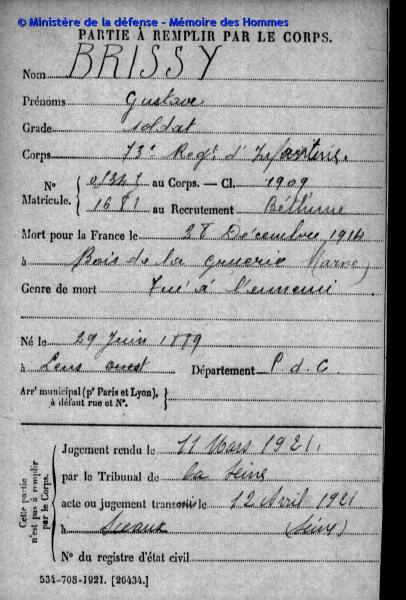 © Ministère de la défense - Mémoire des Hommes
PARTIE À REMPLIR PAR LE CORPS.
Nom BRISSY
Prénoms Gustave
Grade soldat
Corps 73e Regt d'Infanterie.
N° Matricule. { 01343 au Corps. — Cl. 1909
1681 au Recrutement Béthune
Mort pour la France le 28 Décembre 1914
à Bois de la gruerie (Marne)
Genre de mort Tué à l'ennemi
Né le 29 Juin 1889
à Lens ouest Département P. d. C.
Arrt municipal (pr Paris et Lyon), à défaut rue et N°. }
Cette partie n'est pas à remplir par le Corps.
Jugement rendu le 11 Mars 1921.
par le Tribunal de la Seine
acte ou jugement transcrit le 12 Avril 1921
à Sceaux (Seine)
N° du registre d'état civil
534-708-1921. [26434.]